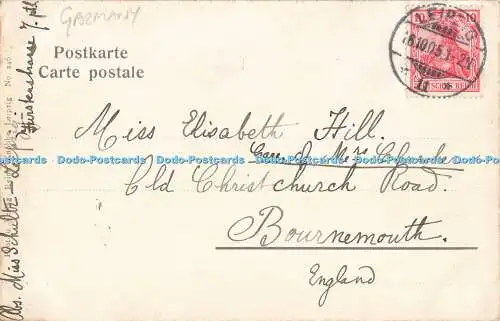 GERMANY
Postkarte
Carte postale
LEIPZIG
16.10.05.1-2N
10
10
Miss Elisabeth Hill.
Care of Mrs Clark
Old Christchurch Road.
Bournemouth.
England
Abs. Miss Schultz
Fürstenstrasse 7.
Leipzig No. 246
Dodo-Postcards Dodo-Postcards Dodo-Postcards Dodo-Postcards Dodo-Postcards Dodo-Postcards